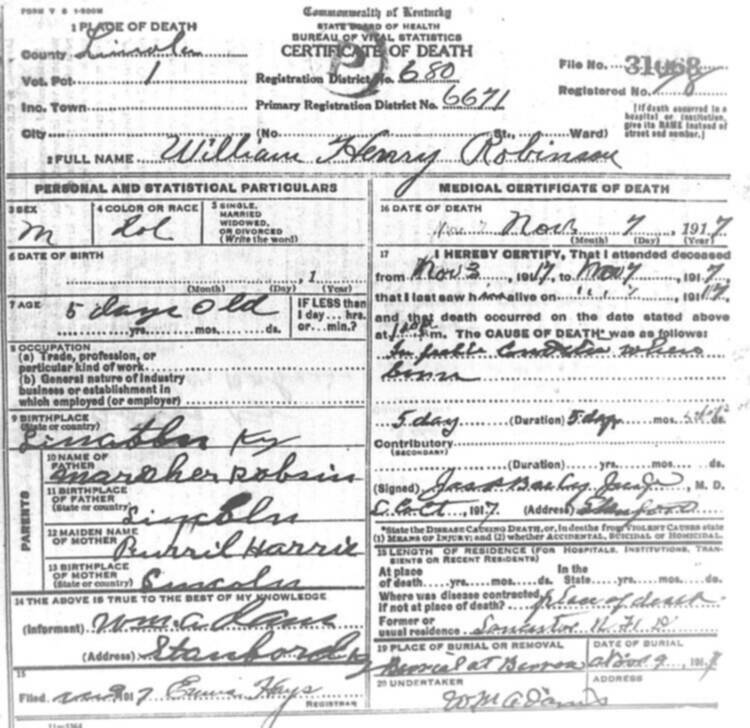 FORM V S 1-500M
Commonwealth of Kentucky
STATE BOARD OF HEALTH
BUREAU OF VITAL STATISTICS
CERTIFICATE OF DEATH
1 PLACE OF DEATH
County Lincoln
Vot. Pct 1
Inc. Town
Registration District No. 680
Primary Registration District No. 6671
File No. 31068
Registered No.
[If death occurred in a
hospital or institution,
give its NAME instead of
street and number.]
City (No St., Ward)
2 FULL NAME William Henry Robinson
PERSONAL AND STATISTICAL PARTICULARS
3 SEX
M
4 COLOR OR RACE
Col
5 SINGLE,
MARRIED
WIDOWED,
OR DIVORCED
(Write the word)
6 DATE OF BIRTH
, 1
(Month) (Day) (Year)
7 AGE
5 days old
yrs. mos. ds.
IF LESS than
1 day... hrs.
or... min.?
8 OCCUPATION
(a) Trade, profession, or
particular kind of work
(b) General nature of industry
business or establishment in
which employed (or employer)
9 BIRTHPLACE
(State or country)
Lincoln Ky
PARENTS
10 NAME OF
FATHER
11 BIRTHPLACE
OF FATHER
(State or country)
Lincoln
12 MAIDEN NAME
OF MOTHER
Burril Harris
13 BIRTHPLACE
OF MOTHER
(State or country)
Lincoln
14 THE ABOVE IS TRUE TO THE BEST OF MY KNOWLEDGE
(Informant) Wm. Adams
(Address) Stanford Ky
15
Filed 191 7 Hays
REGISTRAR
MEDICAL CERTIFICATE OF DEATH
16 DATE OF DEATH
Nov 7 Nov. 7, 1917
(Month) (Day) (Year)
17 I HEREBY CERTIFY, That I attended deceased
from Nov 3, 1917, to Nov 7, 1917
that I last saw him alive on 1917
and that death occurred on the date stated above
at m. The CAUSE OF DEATH* was as follows:
In feeble Condition when
born
5 day (Duration) 5 days mos. ds.
Contributory
(SECONDARY)
(Duration) yrs. mos. ds.
(Signed) M. D.
191 7 (Address) Stanford
*State the DISEASE CAUSING DEATH, or, in deaths from VIOLENT CAUSES state
(1) MEANS OF INJURY; and (2) whether ACCIDENTAL, SUICIDAL OR HOMICIDAL.
18 LENGTH OF RESIDENCE (FOR HOSPITALS, INSTITUTIONS, TRAN-
SIENTS OR RECENT RESIDENTS)
At place In the
of death....yrs....mos....ds. State....yrs....mos....ds.
Where was disease contracted
if not at place of death? place of death
Former or
usual residence
19 PLACE OF BURIAL OR REMOVAL
Burial at
DATE OF BURIAL
Nov 7, 1917
20 UNDERTAKER
Wm Adams
ADDRESS